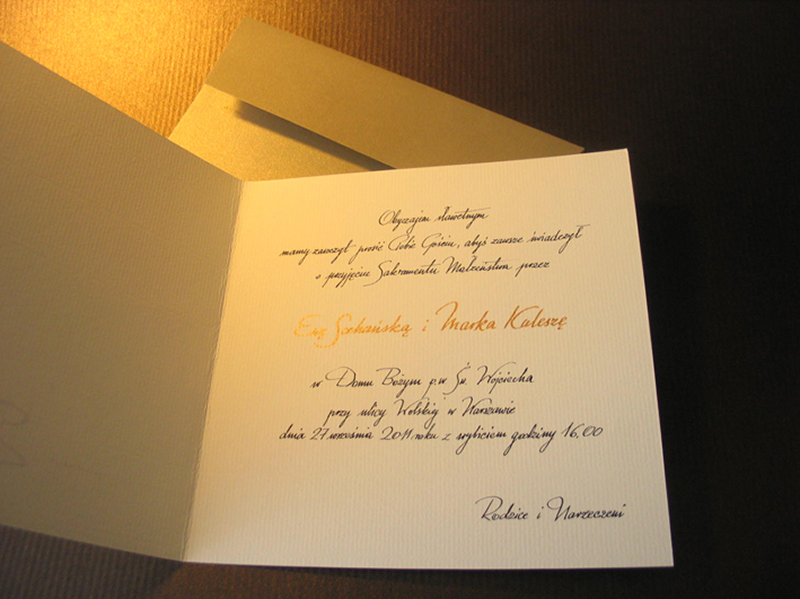 Obyczajem sławetnym
mamy zaszczyt prosić Ciebie Gościu, abyś zawsze świadczył
o przyjęciu Sakramentu Małżeństwa przez
Ewę Sochańską i Marka Kuleszę
w Domu Bożym p.w Św. Wojciecha
przy ulicy Wolskiej w Warszawie
dnia 27 września 2011 roku z wybiciem godziny 16.00
Rodzice i Narzeczeni